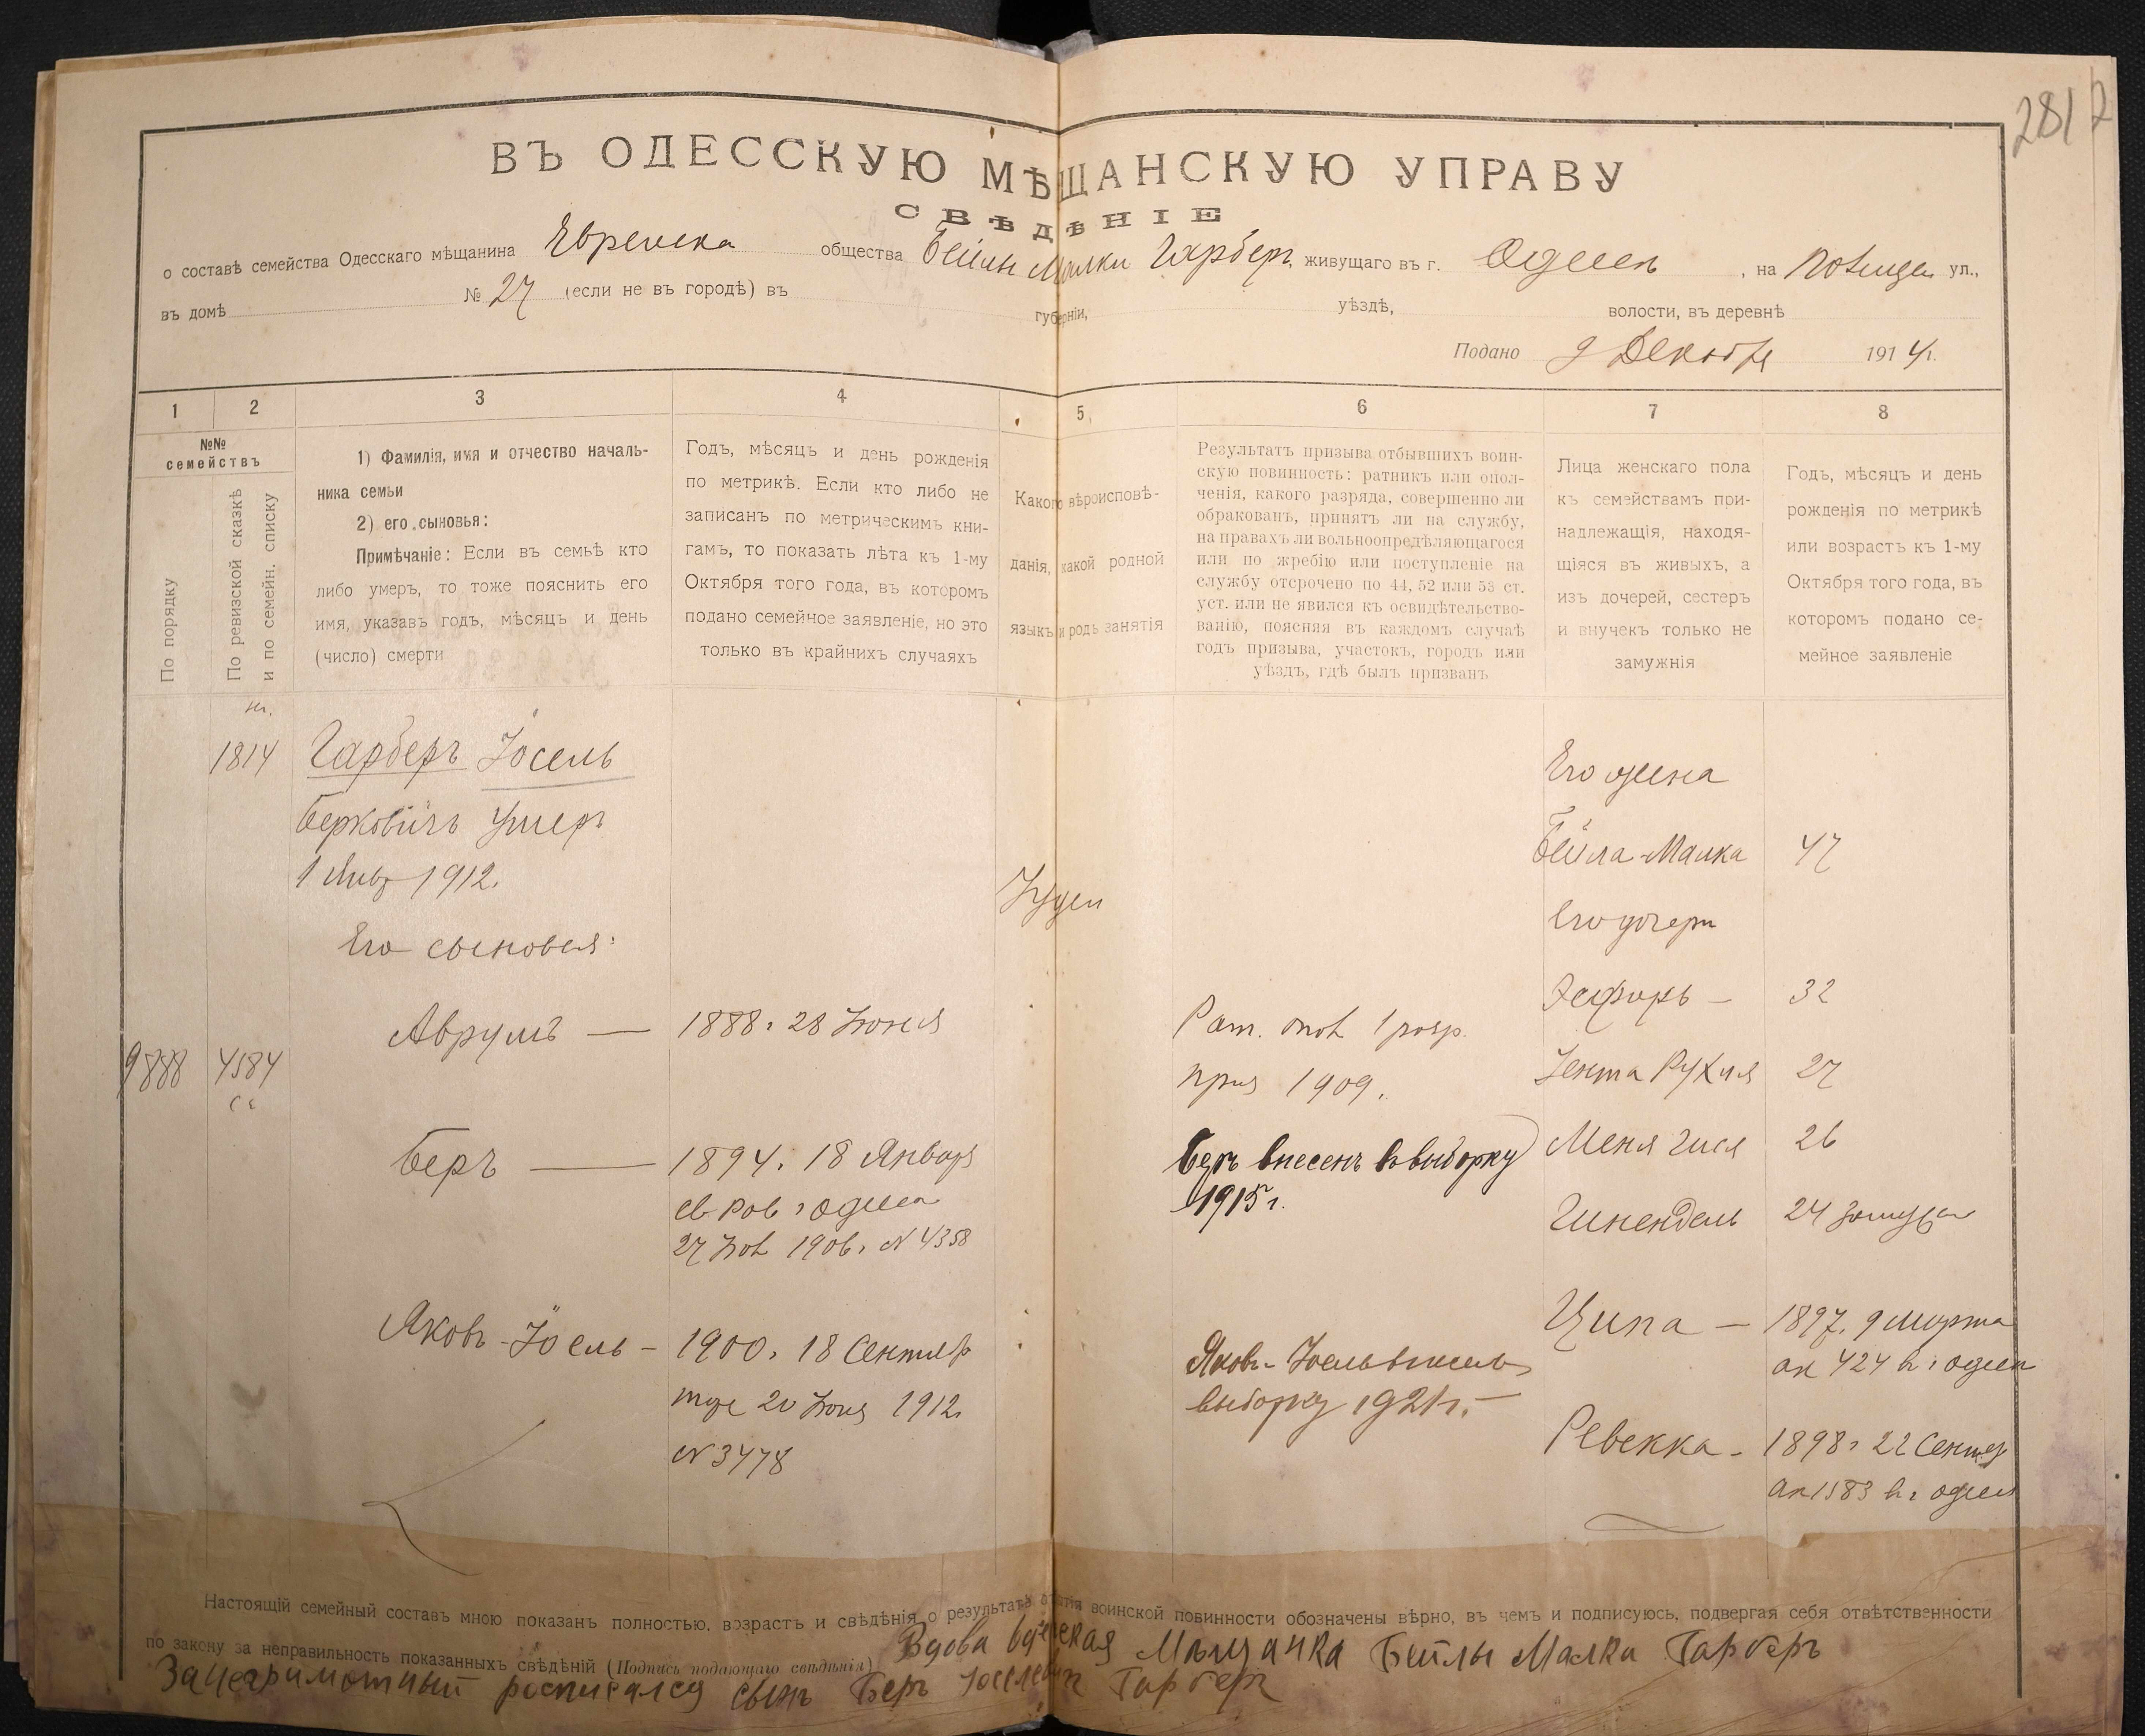 281
ВЪ ОДЕССКУЮ МѢЩАНСКУЮ УПРАВУ
СВѢДѢНІЕ
о составѣ семейства Одесскаго мѣщанина общества Малки Гарберъ, живущаго въ г. , на ул.,
въ домѣ № 27 (если не въ городѣ) въ губерніи, уѣздѣ, волости, въ деревнѣ
Подано 9 1914 г.
1 2 3 4 5 6 7 8
№№ семействъ
По порядку
По ревизской сказкѣ
и по семейн. списку
1) Фамилія, имя и отчество началь-
ника семьи
2) его сыновья:
Примѣчаніе: Если въ семьѣ кто
либо умеръ, то тоже пояснить его
имя, указавъ годъ, мѣсяцъ и день
(число) смерти
Годъ, мѣсяцъ и день рожденія
по метрикѣ. Если кто либо не
записанъ по метрическимъ кни-
гамъ, то показать лѣта къ 1-му
Октября того года, въ которомъ
подано семейное заявленіе, но это
только въ крайнихъ случаяхъ
Какого вѣроисповѣ-
данія, какой родной
языкъ и родъ занятія
Результатъ призыва отбывшихъ воин-
скую повинность: ратникъ или опол-
ченія, какого разряда, совершенно ли
обракованъ, принятъ ли на службу,
на правахъ ли вольноопредѣляющагося
или по жребію или поступленіе на
службу отсрочено по 44, 52 или 53 ст.
уст. или не явился къ освидѣтельство-
ванію, поясняя въ каждомъ случаѣ
годъ призыва, участокъ, городъ или
уѣздъ, гдѣ былъ призванъ
Лица женскаго пола
къ семействамъ при-
надлежащія, находя-
щіяся въ живыхъ, а
изъ дочерей, сестеръ
и внучекъ только не
замужнія
Годъ, мѣсяцъ и день
рожденія по метрикѣ
или возрастъ къ 1-му
Октября того года, въ
которомъ подано се-
мейное заявленіе
1814 Гарберъ Іосель
Берковичъ умеръ
1 Янв 1912.
Его сыновья:
Аврумъ — 1888 г 28 Іюня
9888 4584
Беръ — 1894. 18 Января
г Одесса
27 1906 г N 4358
Яковъ-Іоель — 1900 г 18 Сентяб
20 Іюня 1912
N 3478
Іудеи
Рат. 1 разр.
1909.
Беръ внесенъ в выборку
1915 г.
выборку 1921 г. —
Его жена
Бейла-Малка 47
Его дочери
32
Рухля 27
Меня 26
24
Ципа — 1897. 9 Марта
ак 424 в г Одесс
Ревекка — 1898 г 22 Сентяб
ак 1583 в г Одесс
Настоящій семейный составъ мною показанъ полностью, возрастъ и свѣдѣнія о результатѣ воинской повинности обозначены вѣрно, въ чемъ и подписуюсь, подвергая себя отвѣтственности
по закону за неправильность показанныхъ свѣдѣній (Подпись подающаго свѣдѣнія) Вдова Мещанка Бейлы Малка Гарберъ
За неграмотный росписался сынъ Беръ Гарберъ